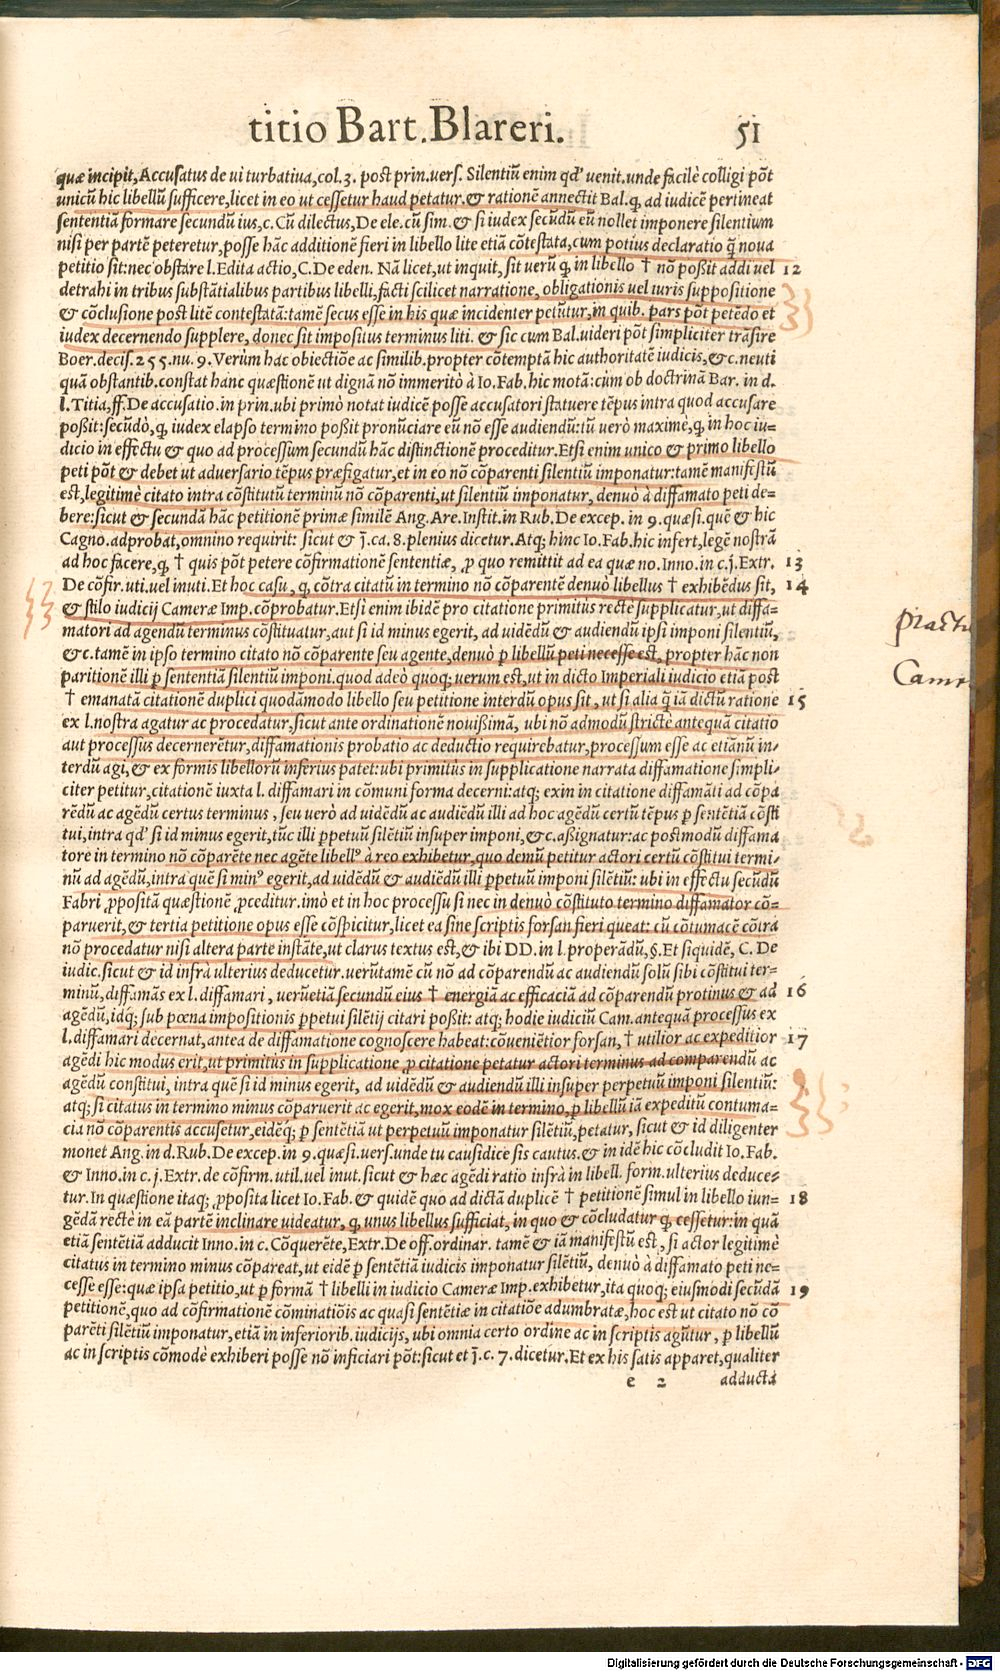 titio Bart. Blareri. 51
quæ incipit, Accusatus de ui turbatiua, col. 3. post prin. uers. Silentiũ enim qd' uenit. unde facilè colligi põt
unicũ hic libellũ sufficere, licet in eo ut cessetur haud petatur. & rationẽ annectit Bal. q̃, ad iudicẽ perimeat
sententiã formare secundũ ius, c. Cũ dilectus, De ele. cũ sim. & si iudex secũdũ eũ nollet imponere silentium
nisi per partẽ peteretur, posse hãc additionẽ fieri in libello lite etiã cõtestata, cum potius declaratio q̃ noua
petitio sit: nec obstare l. Edita actio, C. De eden. Nã licet, ut inquit, sit uerũ q̃, in libello † nõ poßit addi uel 12
detrahi in tribus substãtialibus partibus libelli, facti scilicet narratione, obligationis uel iuris suppositione
& cõclusione post litẽ contestatã: tamẽ secus esse in his quæ incidenter petũtur, in quib. pars põt petẽdo et
iudex decernendo supplere, donec sit impositus terminus liti. & sic cum Bal. uideri põt simpliciter trãsire
Boer. decis. 255. nu. 9. Verùm hac obiectiõe ac similib. propter cõtemptã hic authoritatẽ iudicis, & c. neuti
quã obstantib. constat hanc quæstionẽ ut dignã nõ immeritò à Io. Fab. hic motã: cùm ob doctrinã Bar. in d.
l. Titia, ff. De accusatio. in prin. ubi primò notat iudicẽ posse accusatori statuere tẽpus intra quod accusare
poßit: secũdò, q̃, iudex elapso termino poßit pronũciare eũ nõ esse audiendũ: tũ uerò maximè, q̃, in hoc iu-
dicio in effectu & quo ad processum secundũ hãc distinctionẽ proceditur. Etsi enim unico & primo libello
peti põt & debet ut aduersario tẽpus præfigatur, et in eo nõ cõparenti silentiũ imponatur: tamẽ manifestũ
est, legitimè citato intra cõstitutũ terminũ nõ cõparenti, ut silentiũ imponatur, denuò à diffamato peti de-
bere: sicut & secundã hãc petitionẽ primæ similẽ Ang. Are. Instit. in Rub. De excep. in 9. quæsi. quẽ & hic
Cagno. adprobat, omnino requirit: sicut & j. ca. 8. plenius dicetur. Atq; hinc Io. Fab. hic infert, legẽ nostrã
ad hoc facere, q̃, † quis põt petere cõfirmationẽ sententiæ, ꝓ quo remittit ad ea quæ no. Inno. in c. j. Extr. 13
De cõfir. uti. uel inuti. Et hoc casu, q̃, cõtra citatũ in termino nõ cõparentẽ denuò libellus † exhibẽdus sit, 14
& stilo iudicij Cameræ Imp. cõprobatur. Etsi enim ibidẽ pro citatione primitus rectè supplicatur, ut diffa-
matori ad agendũ terminus cõstituatur, aut si id minus egerit, ad uidẽdũ & audiendũ ipsi imponi silentiũ,
& c. tamẽ in ipso termino citato nõ cõparente seu agente, denuò ꝑ libellũ peti necesse est, propter hãc non
paritionẽ illi ꝑ sententiã silentiũ imponi. quod adeò quoq; uerum est, ut in dicto Imperiali iudicio etiã post
† emanatã citationẽ duplici quodãmodo libello seu petitione interdũ opus sit, ut si alia q̃ iã dictũ ratione 15
ex l. nostra agatur ac procedatur, sicut ante ordinationẽ nouißimã, ubi nõ admodũ strictè antequã citatio
aut processus decernerẽtur, diffamationis probatio ac deductio requirebatur, processum esse ac etiãnũ in-
terdũ agi, & ex formis libellorũ inferius patet: ubi primitùs in supplicatione narrata diffamatione simpli-
citer petitur, citationẽ iuxta l. diffamari in cõmuni forma decerni: atq; exin in citatione diffamãti ad cõpa
rẽdũ ac agẽdũ certus terminus, seu uerò ad uidẽdũ ac audiẽdũ illi ad hoc agẽdũ certũ tẽpus ꝑ sentẽtiã cõsti
tui, intra qd' si id minus egerit, tũc illi ꝑpetuũ silẽtiũ insuper imponi, & c. aßignatur: ac postmodũ diffama
tore in termino nõ cõparẽte nec agẽte libell' à reo exhibetur, quo demũ petitur actori certũ cõstitui termi-
nũ ad agẽdũ, intra quẽ si min' egerit, ad uidẽdũ & audiẽdũ illi ꝑpetuũ imponi silẽtiũ: ubi in effectu secũdũ
Fabri ꝓpositã quæstionẽ ꝓceditur. imò et in hoc processu si nec in denuò cõstituto termino diffamator cõ-
paruerit, & tertia petitione opus esse cõspicitur, licet ea sine scriptis forsan fieri queat: cũ cõtumacẽ cõtra
nõ procedatur nisi altera parte instãte, ut clarus textus est, & ibi DD. in l. properãdũ, §. Et siquidẽ, C. De
iudic. sicut & id infrà ulterius deducetur. uerũtamẽ cũ nõ ad cõparendũ ac audiendũ solũ sibi cõstitui ter-
minũ, diffamãs ex l. diffamari, uerũetiã secundũ eius † energiã ac efficaciã ad cõparendũ protinus & ad 16
agẽdũ, idq; sub pœna impositionis ꝑpetui silẽtij citari poßit: atq; hodie iudiciũ Cam. antequã processus ex
l. diffamari decernat, antea de diffamatione cognoscere habeat: cõueniẽtior forsan, † utilior ac expeditior 17
agẽdi hic modus erit, ut primitùs in supplicatione ꝓ citatione petatur actori terminus ad comparendũ ac
agẽdũ constitui, intra quẽ si id minus egerit, ad uidẽdũ & audiendũ illi insuper perpetuũ imponi silentiũ:
atq; si citatus in termino minus cõparuerit ac egerit, mox eodẽ in termino, ꝑ libellũ iã expeditũ contuma-
cia nõ cõparentis accusetur, eidẽq; ꝑ sentẽtiã ut perpetuũ imponatur silẽtiũ, petatur, sicut & id diligenter
monet Ang. in d. Rub. De excep. in 9. quæsi. uers. unde tu causidice sis cautus. & in idẽ hic cõcludit Io. Fab.
& Inno. in c. j. Extr. de cõfirm. util. uel inut. sicut & hæc agẽdi ratio infrà in libell. form. ulterius deduce-
tur. In quæstione itaq; ꝓposita licet Io. Fab. & quidẽ quo ad dictã duplicẽ † petitionẽ simul in libello iun- 18
gẽdã rectè in eã partẽ inclinare uideatur, q̃, unus libellus sufficiat, in quo & cõcludatur q̃, cessetur: in quã
etiã sentẽtiã adducit Inno. in c. Cõquerẽte, Extr. De off. ordinar. tamẽ & iã manifestũ est, si actor legitimè
citatus in termino minus cõpareat, ut eidẽ ꝑ sentẽtiã iudicis imponatur silẽtiũ, denuò à diffamato peti ne-
cesse esse: quæ ipsa petitio, ut ꝑ formã † libelli in iudicio Cameræ Imp. exhibetur, ita quoq; eiusmodi secũdã 19
petitionẽ, quo ad cõfirmationẽ cõminatiõis ac quasi sentẽtiæ in citatiõe adumbratæ, hoc est ut citato nõ cõ
parẽti silẽtiũ imponatur, etiã in inferiorib. iudicijs, ubi omnia certo ordine ac in scriptis agũtur, ꝑ libellũ
ac in scriptis cõmodè exhiberi posse nõ inficiari põt: sicut et j. c. 7. dicetur. Et ex his satis apparet, qualiter
e 2 adducta
Digitalisierung gefördert durch die Deutsche Forschungsgemeinschaft - DFG